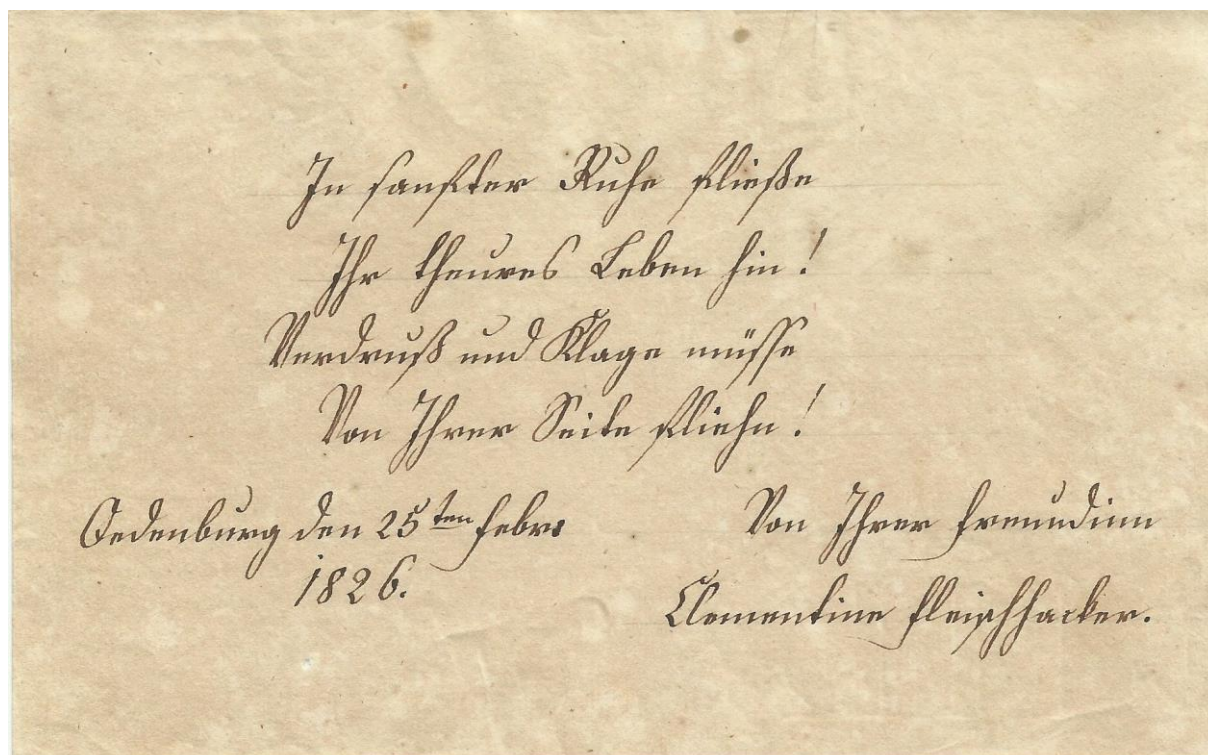 In sanfter Ruhe fließe
Ihr theures Leben hin!
Verdruß und Klage müsse
Von Ihrer Seite fliehn!
Oedenburg den 25ten Febr.
1826.
Von Ihrer Freundinn
Clementine Fleischhacker.